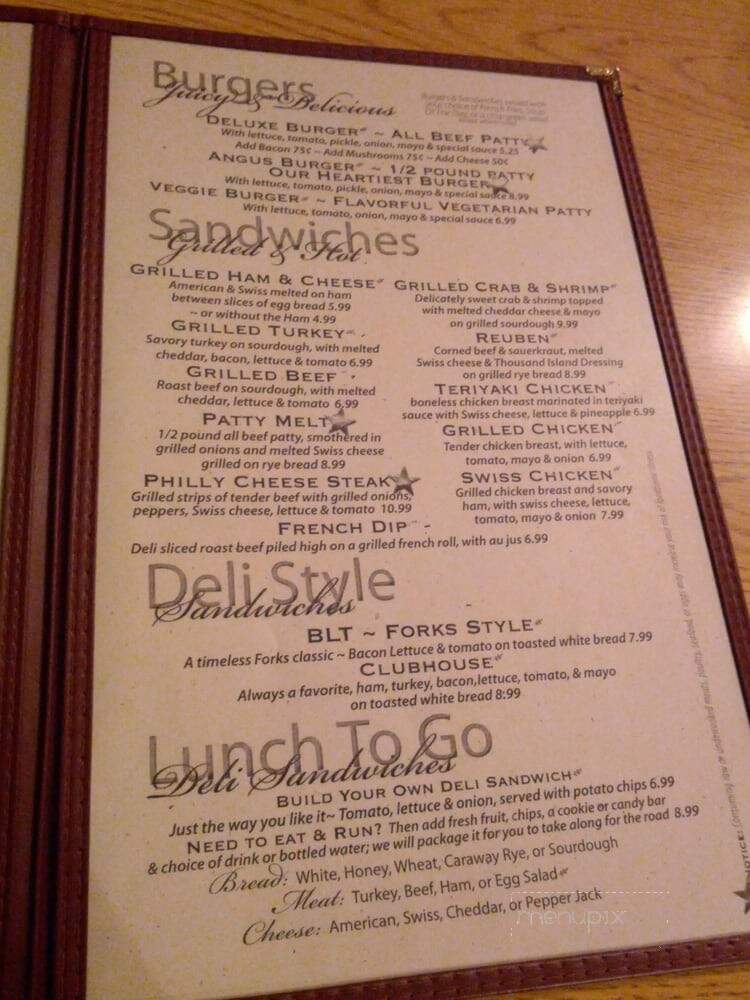 Burgers
Juicy & Delicious
Burgers & Sandwiches served with
your choice of French Fries, Soup
DELUXE BURGER ~ ALL BEEF PATTY
With lettuce, tomato, pickle, onion, mayo & special sauce 5.25
Add Bacon 75¢ ~ Add Mushrooms 75¢ ~ Add Cheese 50¢
ANGUS BURGER ~ 1/2 POUND PATTY
OUR HEARTIEST BURGER
With lettuce, tomato, pickle, onion, mayo & special sauce 8.99
VEGGIE BURGER ~ FLAVORFUL VEGETARIAN PATTY
With lettuce, tomato, onion, mayo & special sauce 6.99
Sandwiches
Grilled & Hot
GRILLED HAM & CHEESE
American & Swiss melted on ham
between slices of egg bread 5.99
~ or without the Ham 4.99
GRILLED TURKEY
Savory turkey on sourdough, with melted
cheddar, bacon, lettuce & tomato 6.99
GRILLED BEEF
Roast beef on sourdough, with melted
cheddar, lettuce & tomato 6.99
PATTY MELT
1/2 pound all beef patty, smothered in
grilled onions and melted Swiss cheese
grilled on rye bread 8.99
PHILLY CHEESE STEAK
Grilled strips of tender beef with grilled onions,
peppers, Swiss cheese, lettuce & tomato 10.99
GRILLED CRAB & SHRIMP
Delicately sweet crab & shrimp topped
with melted cheddar cheese & mayo
on grilled sourdough 9.99
REUBEN
Corned beef & sauerkraut, melted
Swiss cheese & Thousand Island Dressing
on grilled rye bread 8.99
TERIYAKI CHICKEN
boneless chicken breast marinated in teriyaki
sauce with Swiss cheese, lettuce & pineapple 6.99
GRILLED CHICKEN
Tender chicken breast, with lettuce,
tomato, mayo & onion 6.99
SWISS CHICKEN
Grilled chicken breast and savory
ham, with swiss cheese, lettuce,
tomato, mayo & onion 7.99
FRENCH DIP
Deli sliced roast beef piled high on a grilled french roll, with au jus 6.99
Deli Style
Sandwiches
BLT ~ FORKS STYLE
A timeless Forks classic ~ Bacon Lettuce & tomato on toasted white bread 7.99
CLUBHOUSE
Always a favorite, ham, turkey, bacon,lettuce, tomato, & mayo
on toasted white bread 8.99
Lunch To Go
Deli Sandwiches
BUILD YOUR OWN DELI SANDWICH
Just the way you like it~ Tomato, lettuce & onion, served with potato chips 6.99
NEED TO EAT & RUN? Then add fresh fruit, chips, a cookie or candy bar
& choice of drink or bottled water; we will package it for you to take along for the road 8.99
Bread: White, Honey, Wheat, Caraway Rye, or Sourdough
Meat: Turkey, Beef, Ham, or Egg Salad
Cheese: American, Swiss, Cheddar, or Pepper Jack
NOTICE: Consuming raw or undercooked meats, poultry, seafood or eggs may increase your risk of foodborne illness
menupix